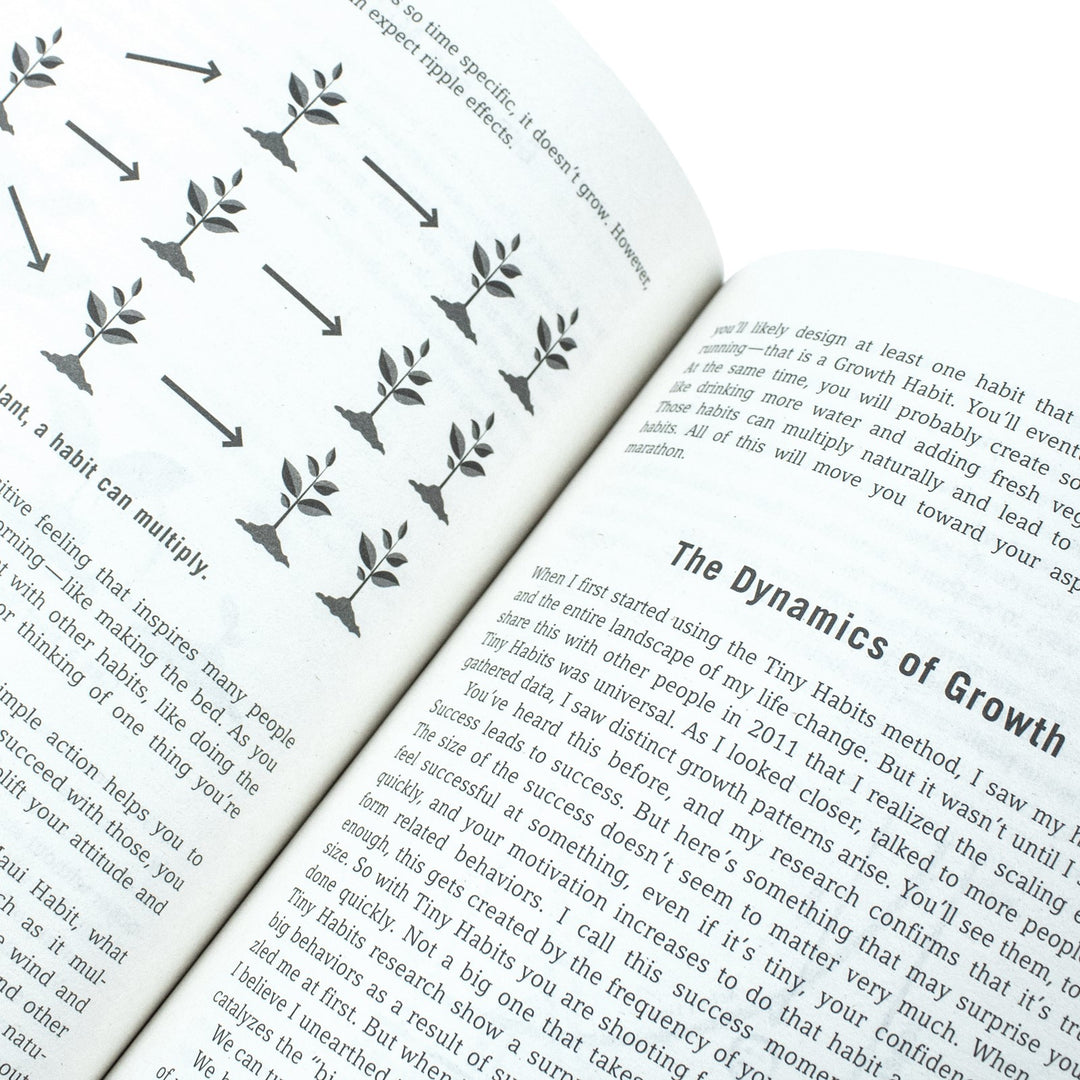 s so time specific, it doesn't grow. However,
n expect ripple effects.
lant, a habit can multiply.
itive feeling that inspires many people
orning—like making the bed. As you
t with other habits, like doing the
or thinking of one thing you're
imple action helps you to
succeed with those, you
plift your attitude and
Maui Habit, what
ch as it mul-
e wind and
nd other
natu-
out
you'll likely design at least one habit that
running—that is a Growth Habit. You'll eventu
At the same time, you will probably create so
like drinking more water and adding fresh veg
Those habits can multiply naturally and lead to
habits. All of this will move you toward your asp
marathon.
The Dynamics of Growth
When I first started using the Tiny Habits method, I saw my h
and the entire landscape of my life change. But it wasn't until I s
share this with other people in 2011 that I realized the scaling e
Tiny Habits was universal. As I looked closer, talked to more people
gathered data, I saw distinct growth patterns arise. You'll see them, to
You've heard this before, and my research confirms that it's tr
Success leads to success. But here's something that may surprise you
The size of the success doesn't seem to matter very much. When
feel successful at something, even if it's tiny, your confiden
quickly, and your motivation increases to do that habit a
form related behaviors. I call this success momen
enough, this gets created by the frequency of yo
size. So with Tiny Habits you are shooting f
done quickly. Not a big one that takes
Tiny Habits research show a surpr
big behaviors as a result of su
zled me at first. But when
I believe I unearthed
catalyzes the "bi
We can tu
We h
of y